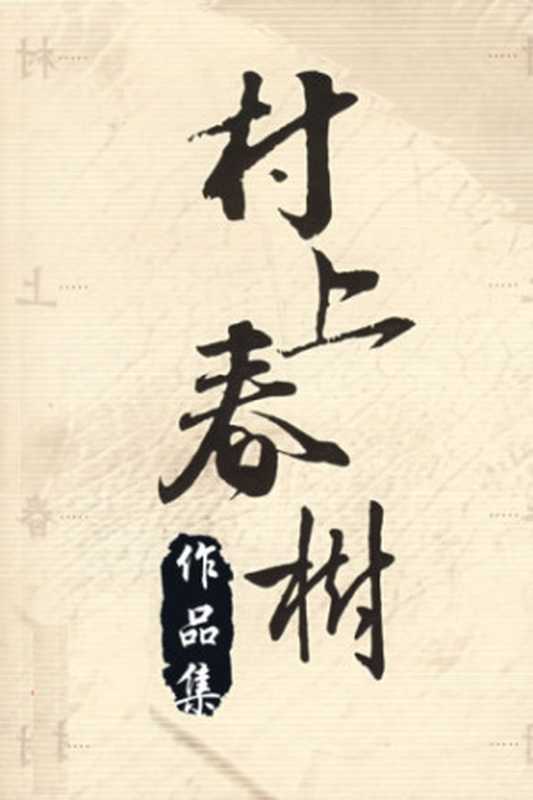 村上春樹
作品集